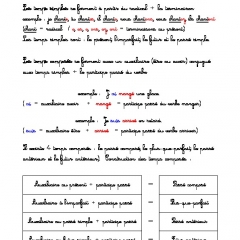 Les temps simples se forment à partir du radical + la terminaison
exemple : je chante, tu chantes, il chante, nous chantons, vous chantez, ils chantent
chant = radical / e, es, e, ons, ez, ent = terminaisons au présent)
Les temps simples sont : le présent, l'imparfait, le futur et le passé simple.
Les temps composés se forment avec un auxiliaire (être ou avoir) conjugué
aux temps simples + le participe passé du verbe.
exemple : J'ai mangé une glace
(ai = auxiliaire avoir + mangé = participe passé du verbe manger)
exemple : Je suis arrivé en retard
(suis = auxiliaire être + arrivé = participe passé du verbe arriver)
Il existe 4 temps composés : le passé composé, le plus que parfait, le passé
antérieur et le futur antérieur. Construction des temps composés :
Auxiliaire au présent + participe passé = Passé composé
Auxiliaire à l'imparfait + participe passé = Plus-que-parfait
Auxiliaire au passé simple + participe passé = Passé antérieur